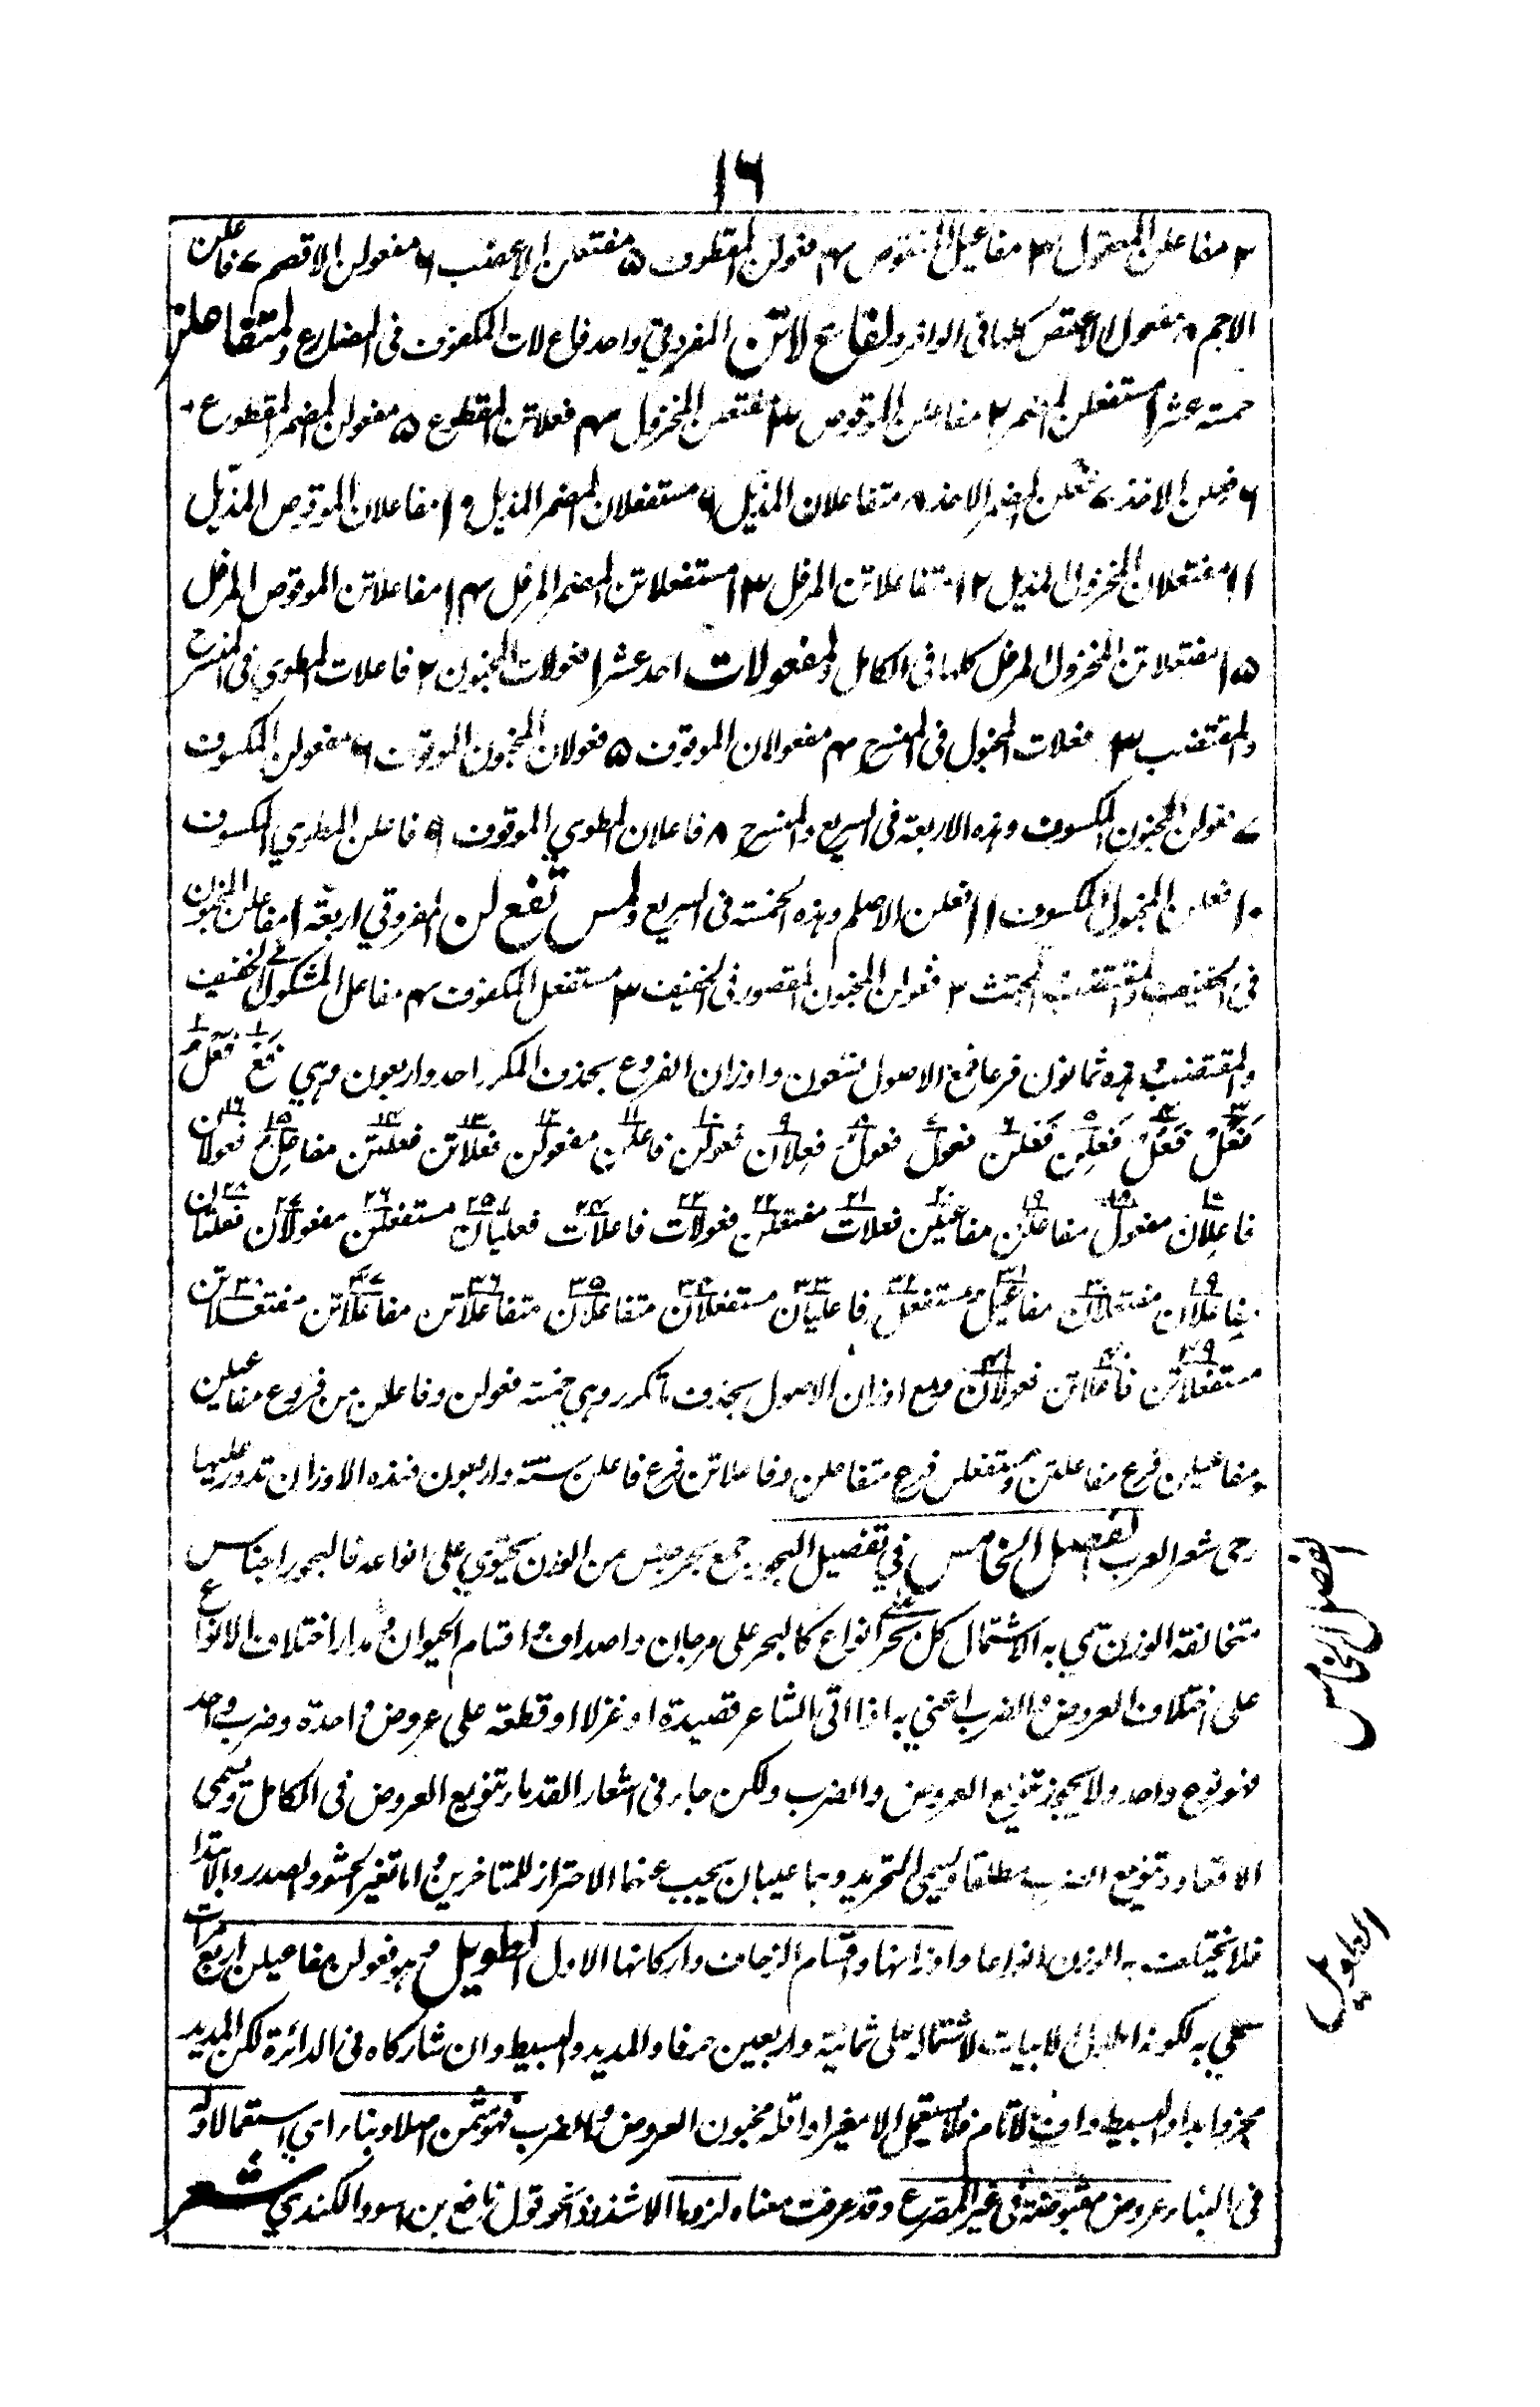 ١٦
٢ مفاعلن المعقول ٣ مفاعيل المنقوص ٤ فعولن المقطوف ٥ مفتعلن الاعضب ٦ مفعولن الاقصم ٧ فاعلن
الاجم ٨ مفعول الاعقص كلها فى الوافر ولفاع لاتن المفروقي واحد فاع لات المكفوف فى المضارع ولمتفاعلن
خمسة عشر ١ مستفعلن المضمر ٢ مفاعلن الموقوص ٣ مفتعلن المخزول ٤ فعلاتن المقطوع ٥ مفعولن المضمر المقطوع
٦ فعلن الاحذ ٧ فعلن المضمر الاحذ ٨ متفاعلان المذيل ٩ مستفعلان المضمر المذيل ١٠ مفاعلان الموقوص المذيل
١١ مفتعلان المخزول المذيل ١٢ متفاعلاتن المرفل ١٣ مستفعلاتن المضمر المرفل ١٤ مفاعلاتن الموقوص المرفل
١٥ مفتعلاتن المخزول المرفل كلها فى الكامل ولمفعولات احد عشر ١ فعولات المخبون ٢ فاعلات المطوي فى المنسرح
والمقتضب ٣ فعلات المخبول فى المنسرح ٤ مفعولان الموقوف ٥ فعولان المخبون الموقوف ٦ مفعولن المكسوف
٧ فعولن المخبون المكسوف وهذه الاربعة فى السريع والمنسرح ٨ فاعلان المطوي الموقوف ٩ فاعلن المطوي المكسوف
١٠ فعلن المخبول المكسوف ١١ فعلن الاصلم وهذه الخمسة فى السريع ولمس تفع لن المفروقي اربعة ١ مفاعلن المخبون
فى الخفيف والمقتضب والمجتث ٢ فعولن المخبون المقصور فى الخفيف ٣ مستفعل المكفوف ٤ مفاعل المشكول فى الخفيف
والمقتضب وهذه ثمانون فرعا فمع الاصول تسعون واوزان الفروع بحذف المكرر احد واربعون وهي فَعْ ١ فَعَلُ ٢
فَعَلْ ٣ فَعْلُ ٤ فَعِلن ٥ فَعْلن ٦ فعولُ ٧ فعولْ ٨ فعِلان ٩ فعولن ١٠ فاعلن ١١ مفعولن ١٢ فعلاتن ١٣ فعلتن ١٤ مفاعلُ ١٥ فعولان ١٦
فاعلان ١٧ مفعول ١٨ مفاعلن ١٩ مفاعيلن ٢٠ فعلات ٢١ مفتعلن ٢٢ فعولات ٢٣ فاعلات ٢٤ فعليان ٢٥ مستفعلن ٢٦ مفعولان ٢٧ فعلتان ٢٨
مفاعلان ٢٩ مفتعلان ٣٠ مفاعيل ٣١ مستفعل ٣٢ فاعليان ٣٣ مستفعلان ٣٤ متفاعلان ٣٥ متفاعلاتن ٣٦ مفاعلاتن ٣٧ مفتعلاتن ٣٨
مستفعلاتن ٣٩ فاعلاتن ٤٠ فعولان ٤١ ومع اوزان الاصول بحذف ما تكرر وهي خمسة فعولن وفاعلن من فروع مفاعيلن
ومفاعيلن فرع مفاعلتن ومستفعلن فرع متفاعلن وفاعلاتن فرع فاعلن ستة واربعون فهذه الاوزان تدور عليها
رحى شعر العرب الفصل الخامس في تفصيل البحور جمع بحر جنس من الوزن يحتوي على انواعه فالبحور اجناس
متخالفة الوزن سمي به لاشتمال كل بحر على انواع كالبحر على مرجان واصداف واقسام الحيوان ومدار اختلاف الانواع
على اختلاف العروض والضرب اعني به اذا اتى الشاعر قصيدة او غزلا او قطعة على عروض واحدة وضرب واحد
فهو نوع واحد ولا يجوز تنويع العروض والضرب ولكن جاء فى اشعار القدماء تنويع العروض فى الكامل ويسمى
الاقعاد وتنويع الضرب مطلقا ويسمى التحريد وهما عيبان يجب عنهما الاحتراز للمتاخرين واما تغير الحشو والصدر والابتدا
فلا يختلف به الوزن انواعها واوزانها واقسام الزحاف واركانها الاول الطويل وهو فعولن مفاعيلن اربع مرات
سمي به لكونه اطول الابيات لاشتماله على ثمانية واربعين حرفا والمديد والبسيط وان شاركاه فى الدائرة لكن المديد
مجزو ابدا والبسيط واف لا تام فلا يستعمل الا مغيرا واقله مخبون العروض والضرب فهو مثمن اصلا وبناء اي استعمالا وله
فى البناء عروض مقبوضة فى غير المصرع وقد عرفت معناه لزوما الا شذوذا نحو قول ناضح بن اسود الكندي شعر
الفصل الخامس
الطويل